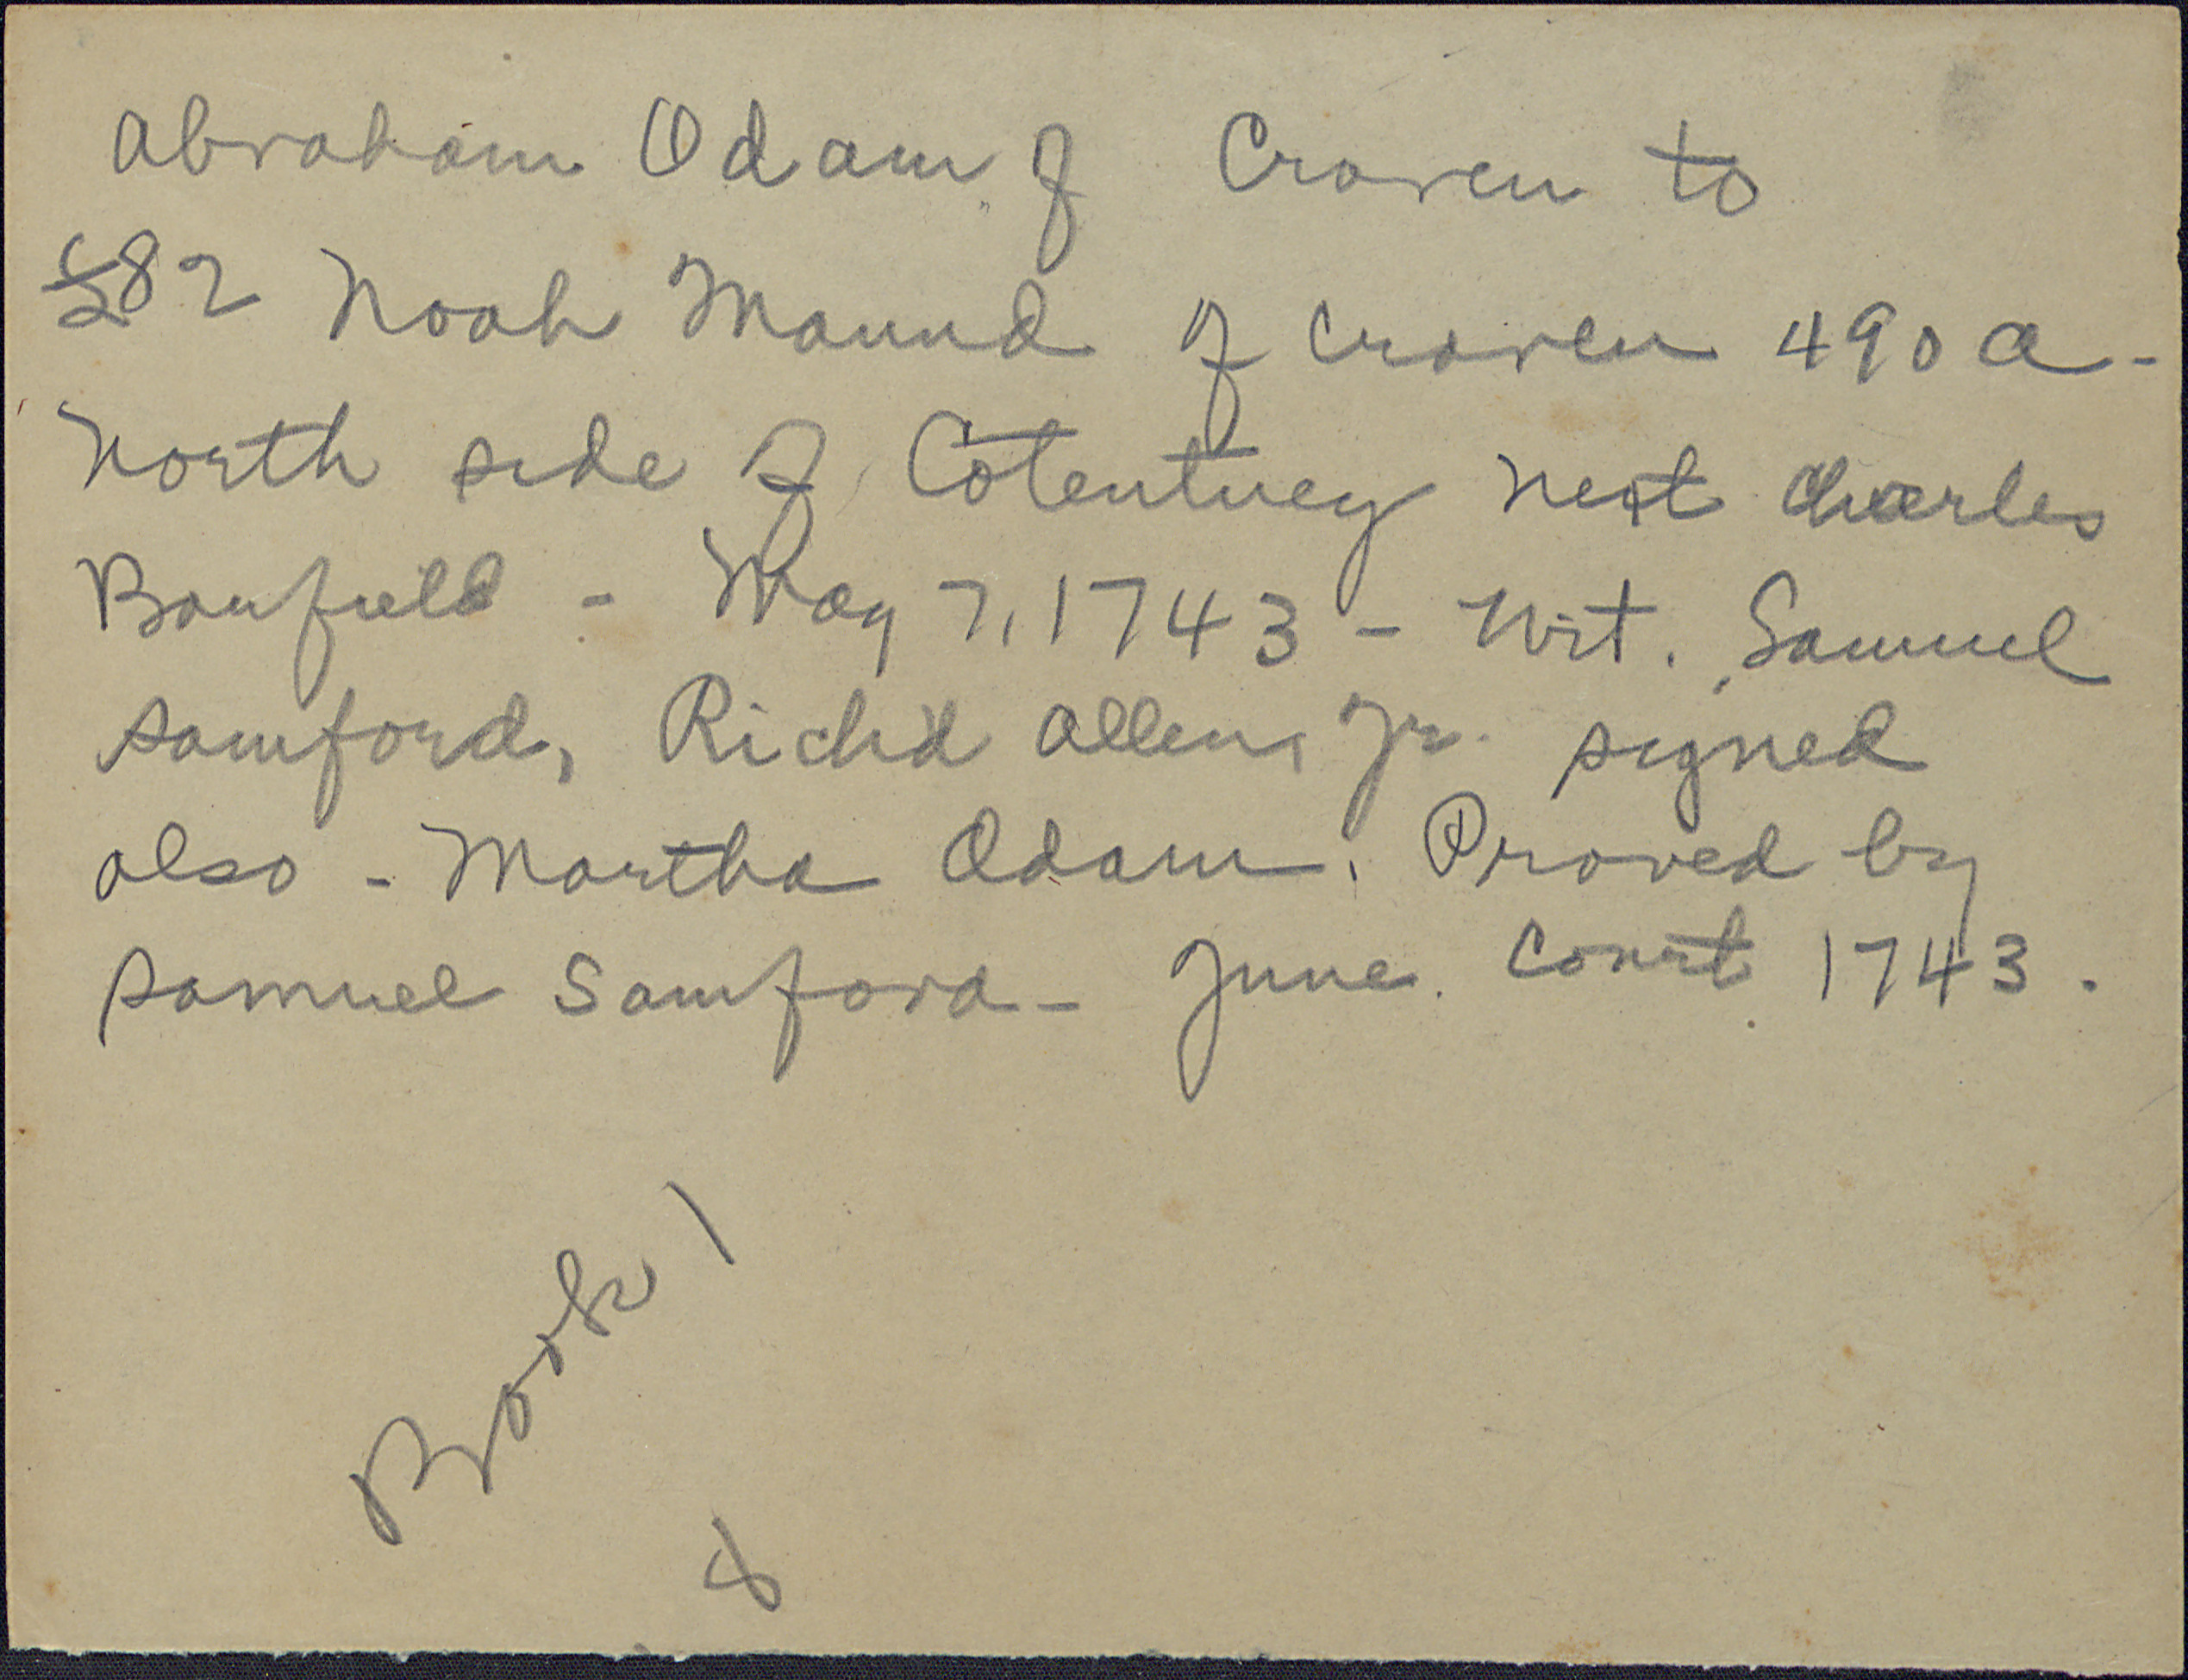 Abraham Odam of Craven to
£82 Noah Maund of Craven 490 a-
North side of Cotentney next Charles
Banfield - May 7, 1743 - Wit. Samuel
Samford, Rich'd Allen, Jr. signed
also - Martha Odam. Proved by
Samuel Samford - June Court 1743.
Book 1
8